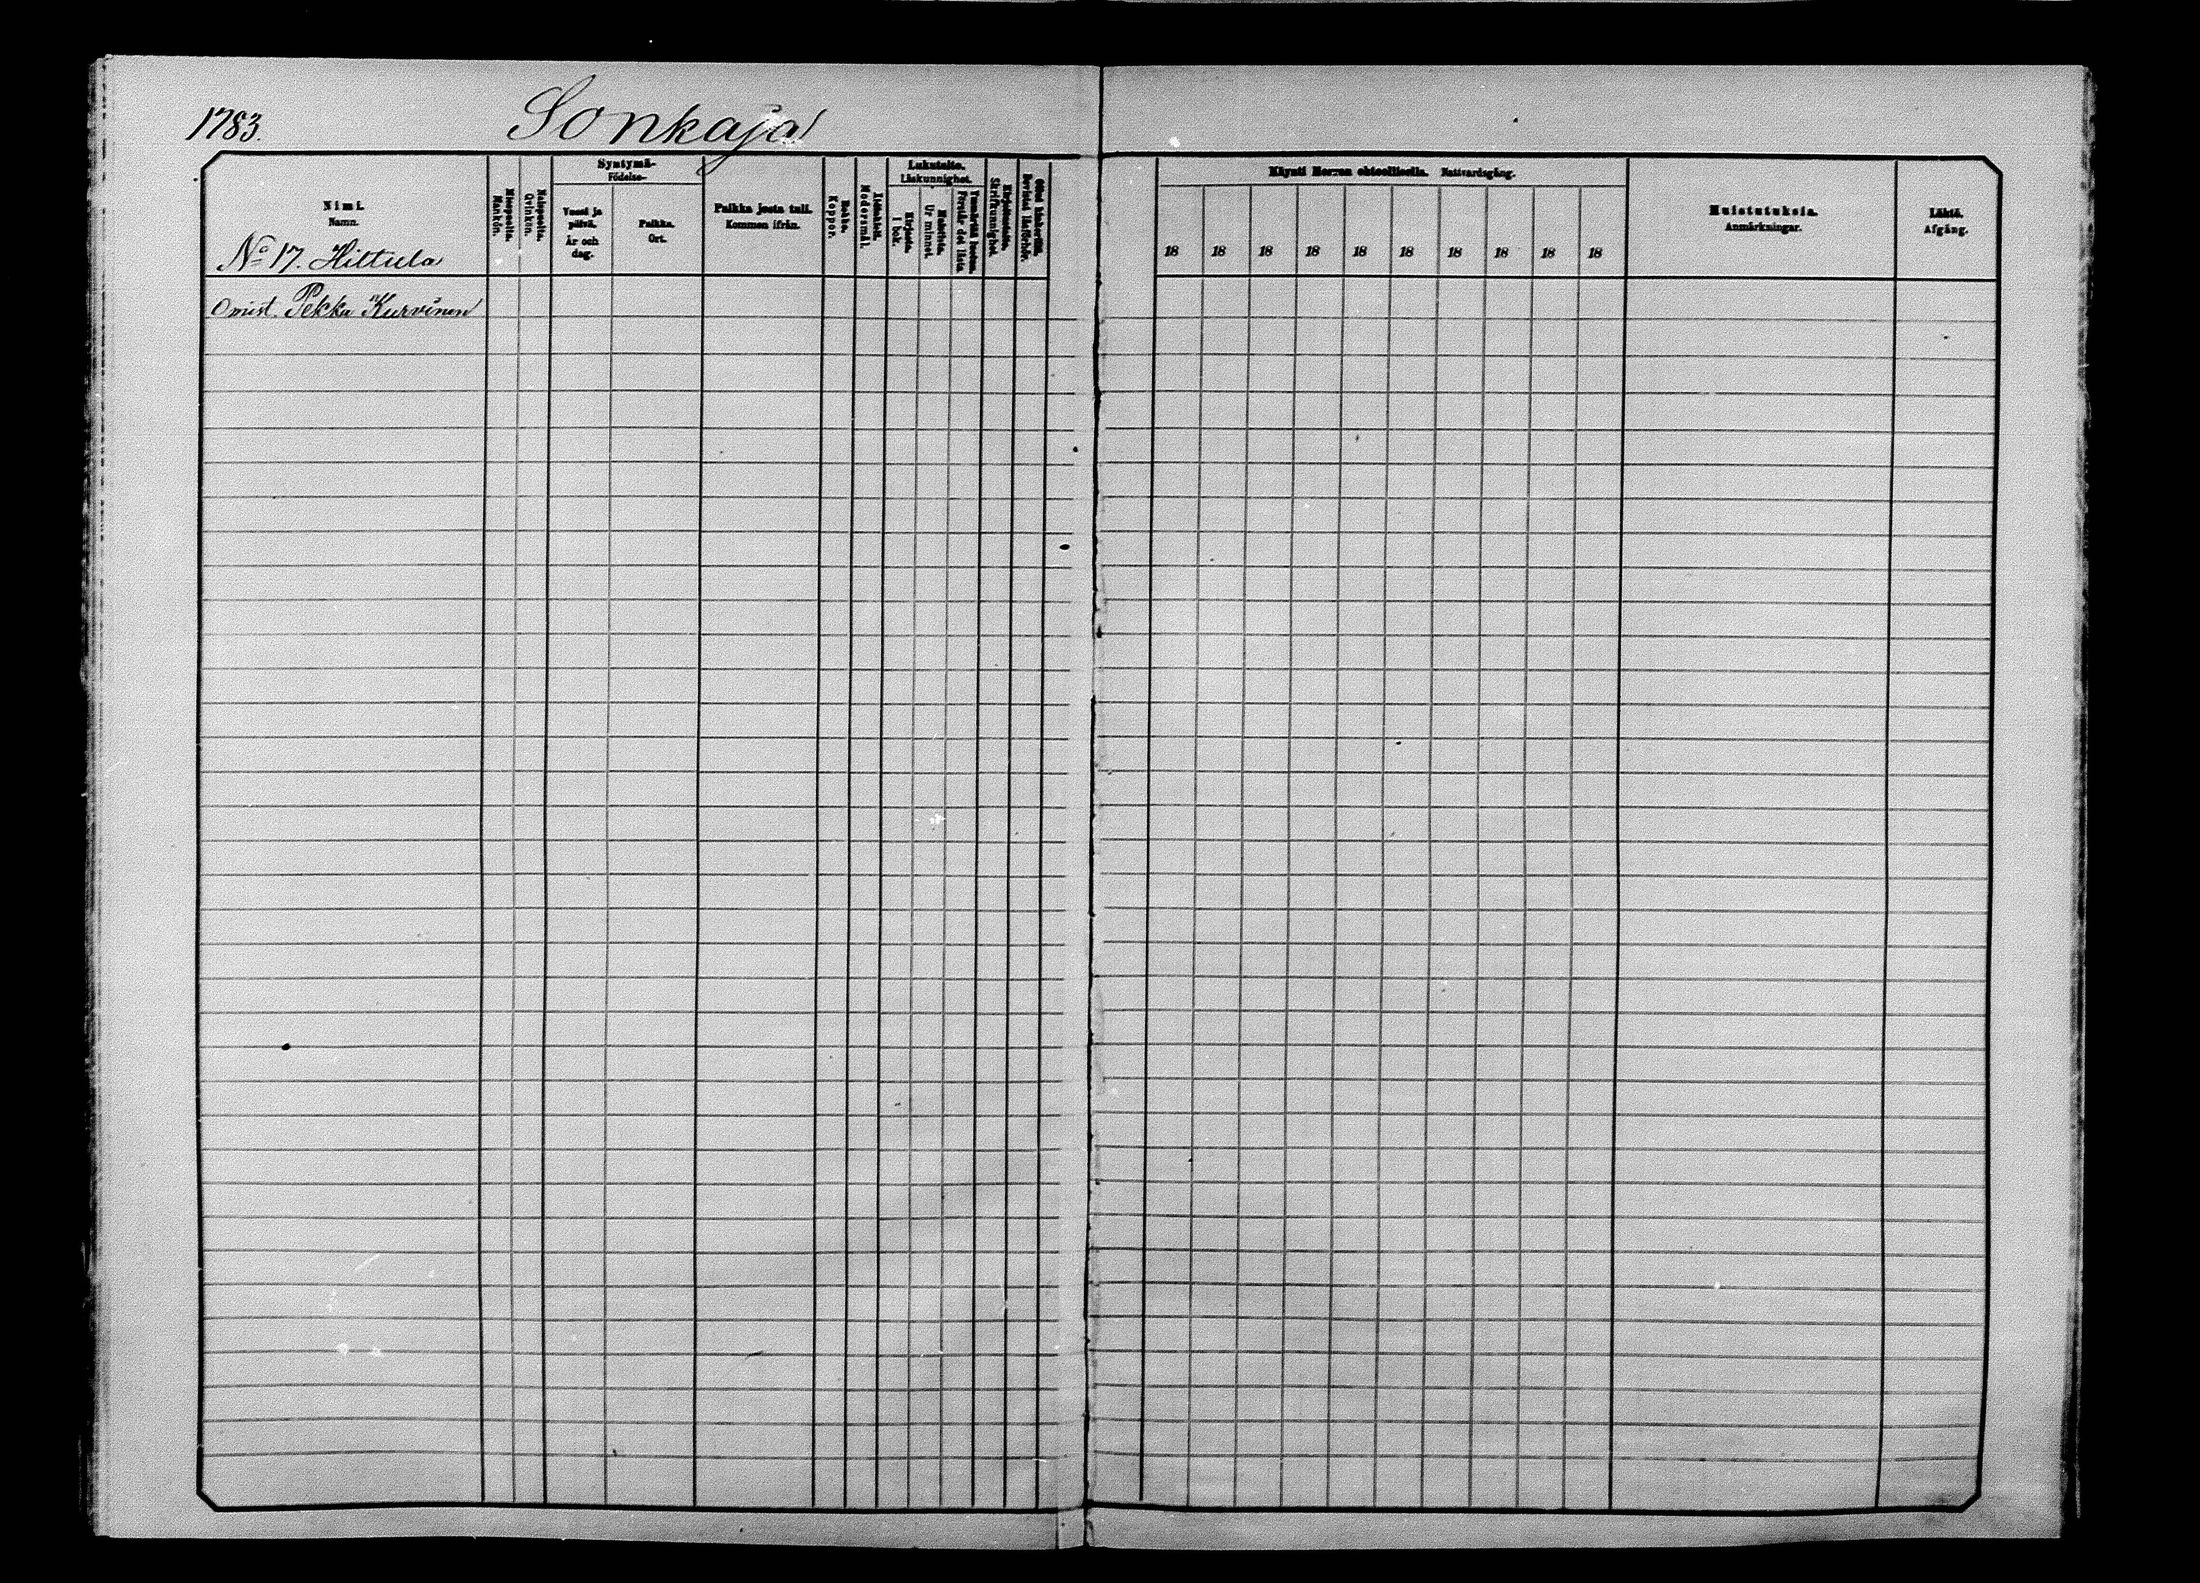 1783.
Sonkaja
Nimi.
Namn.
No 17. Hiltula
Miespuolta.
Mankön.
Naispuolta.
Qvinkön.
Syntymä-
Födelse-
Vuosi ja
päivä.
År och
dag.
Paikka.
Ort.
Paikka josta tuli.
Kommen ifrån.
Rokko.
Koppor.
Äidinkieli.
Modersmål.
Lukutaito.
Läskunnighet.
Kirjasta.
I bok.
Muistista.
Ur minnet.
Ymmärtää luetun.
Förstår det lästa
Kirjoitustaito.
Skrifkunnighet.
Ollut lukukerrilla.
Bevistat läsförhör.
Käynti Herran ehtoollisella. Nattvardsgång.
18 18 18 18 18 18 18 18 18 18
Muistutuksia.
Anmärkningar.
Lähtö.
Afgång.
Omist. Pekka Kurvinen